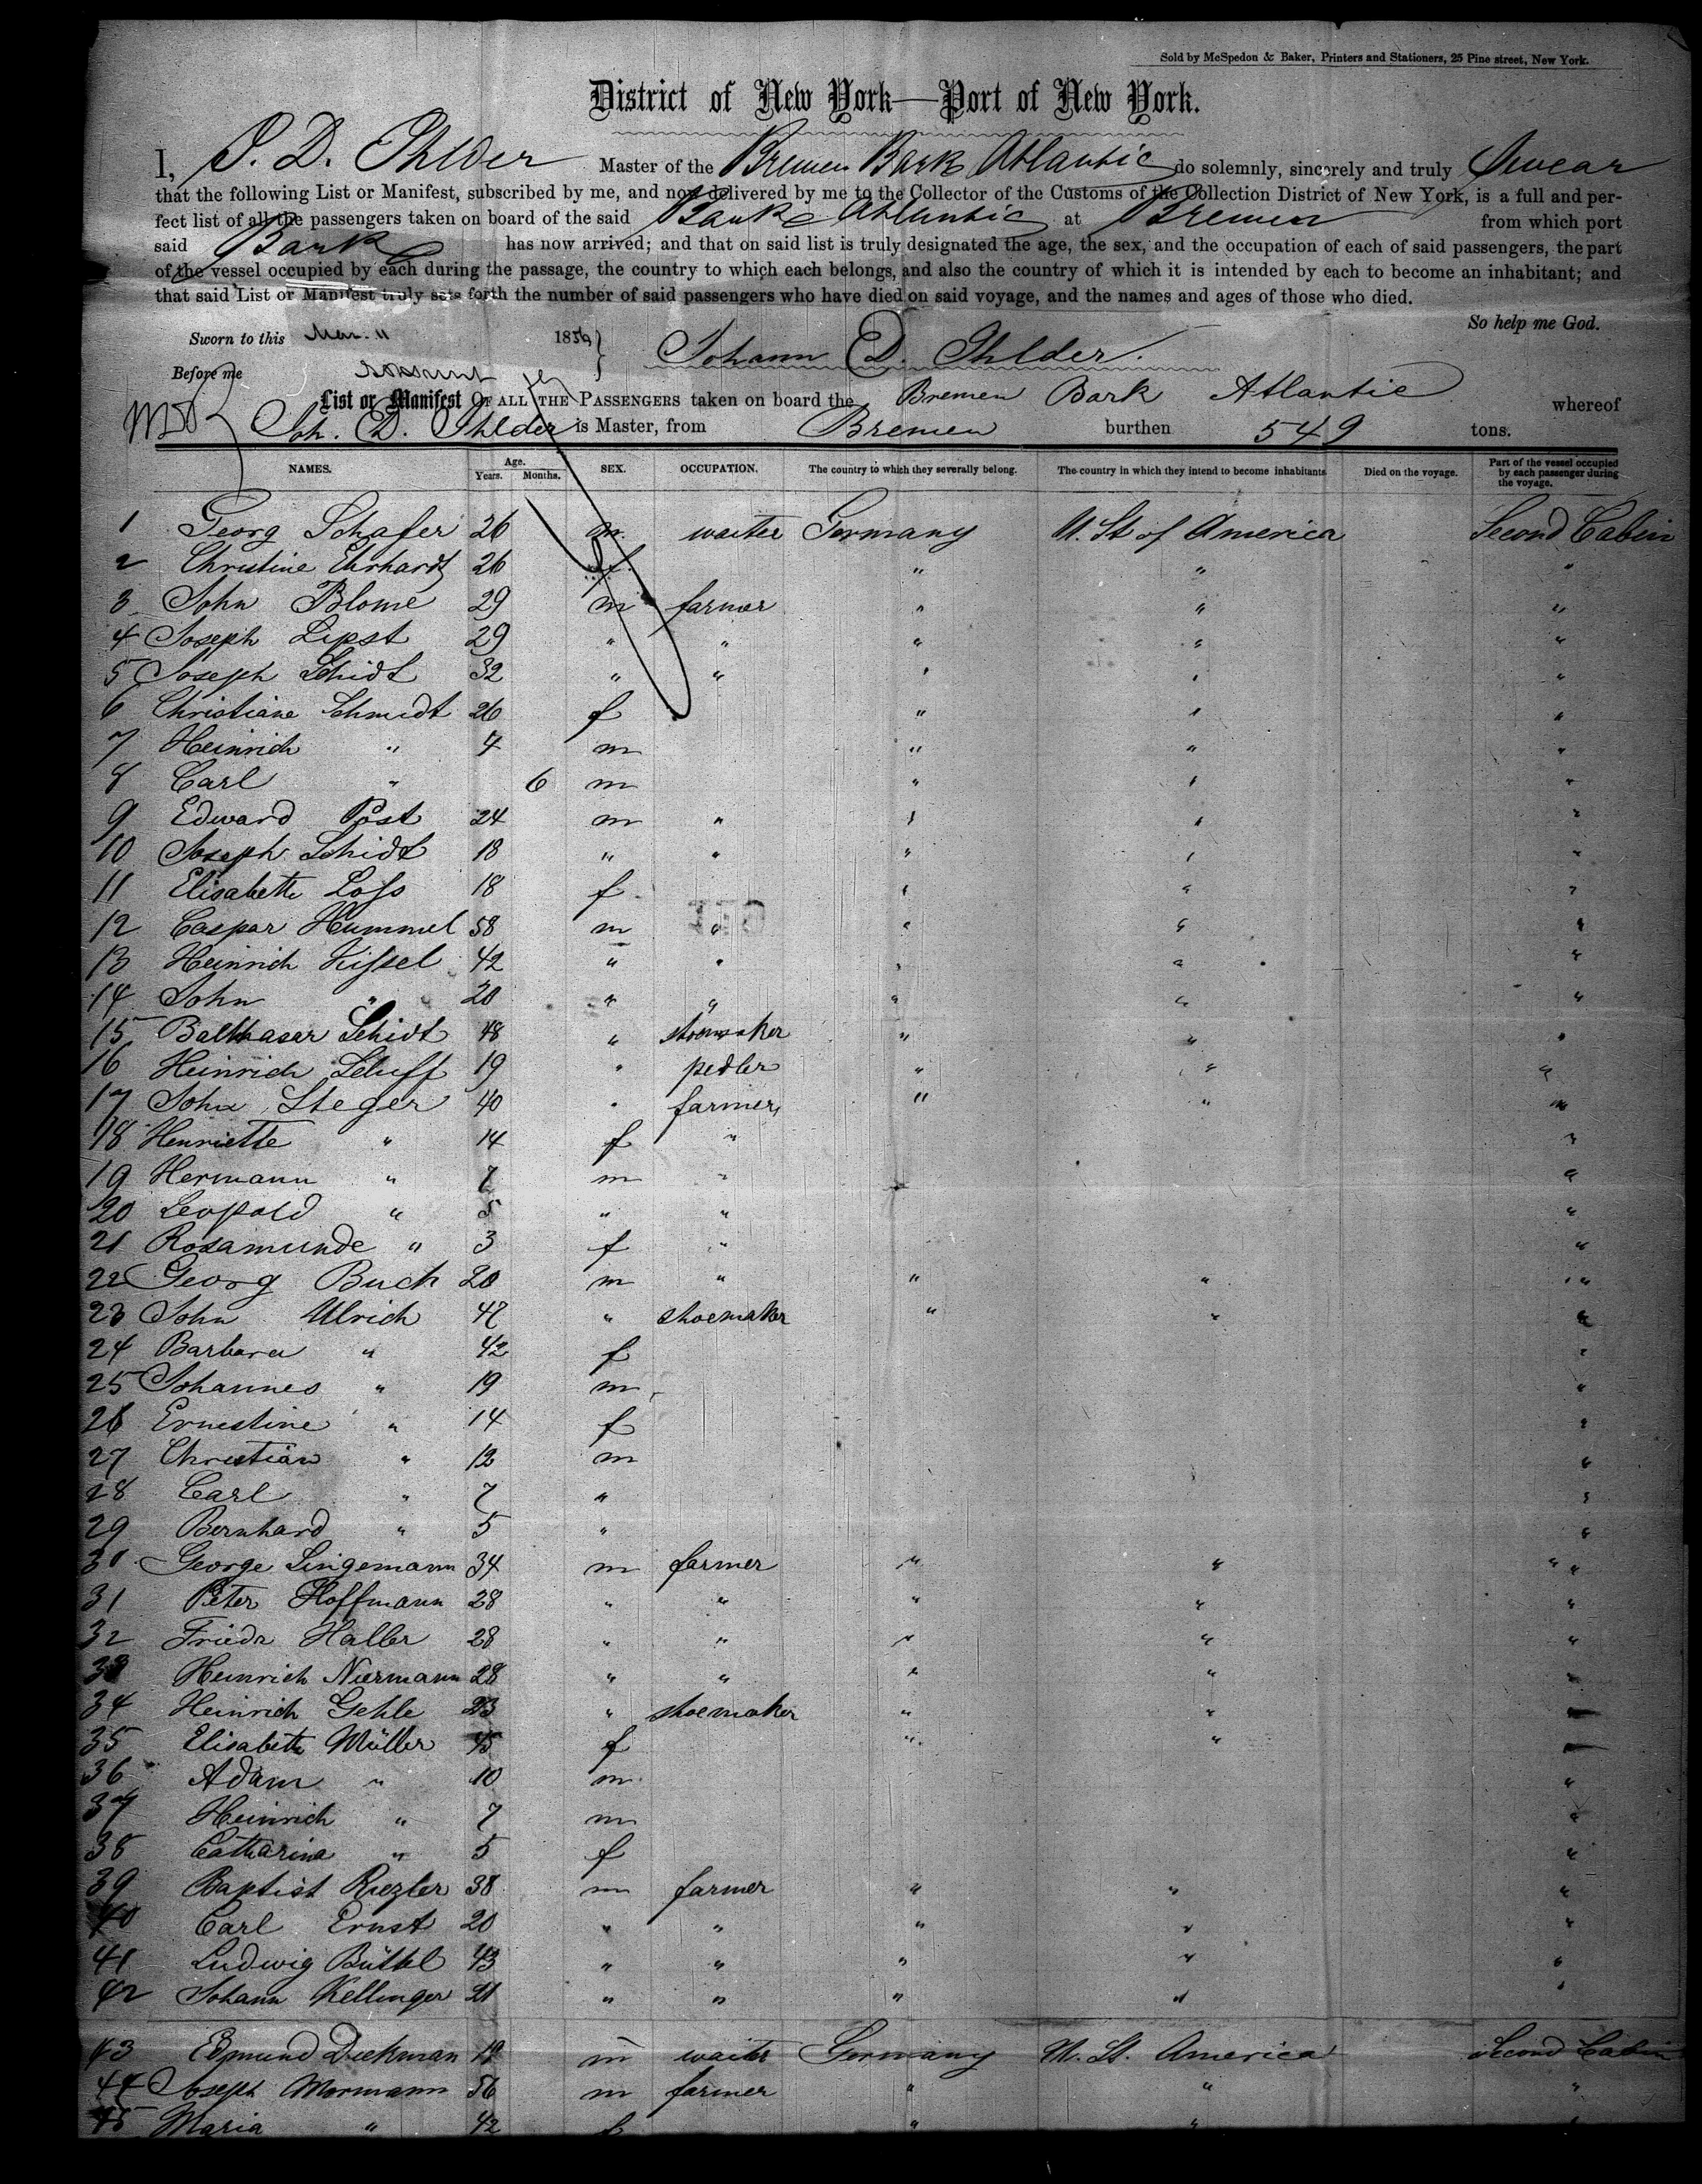 Sold by McSpedon & Baker, Printers and Stationers, 25 Pine street, New York.
District of New York—Port of New York.
I, J. D. Ihlder Master of the Bremen Bark Atlantic do solemnly, sincerely and truly swear
that the following List or Manifest, subscribed by me, and now delivered by me to the Collector of the Customs of the Collection District of New York, is a full and per-
fect list of all the passengers taken on board of the said Bark Atlantic at Bremen from which port
said Bark has now arrived; and that on said list is truly designated the age, the sex, and the occupation of each of said passengers, the part
of the vessel occupied by each during the passage, the country to which each belongs, and also the country of which it is intended by each to become an inhabitant; and
that said List or Manifest truly sets forth the number of said passengers who have died on said voyage, and the names and ages of those who died.
So help me God.
Sworn to this Mar. 11 1856
Johann D. Ihlder.
Before me
List or Manifest OF ALL THE PASSENGERS taken on board the Bremen Bark Atlantic whereof
Joh. D. Ihlder is Master, from Bremen burthen 549 tons.
NAMES. Age. Years. Months. SEX. OCCUPATION. The country to which they severally belong. The country in which they intend to become inhabitants Died on the voyage. Part of the vessel occupied by each passenger during the voyage.
1 Georg Schafer 26 m. waiter Germany U. St of America Second Cabin
2 Christine Ehrhardt 26 f. " " "
3 John Blome 29 m farmer " " "
4 Joseph Lipst 29 " " " " "
5 Joseph Schidt 32 " " " " "
6 Christiane Schmidt 26 f " " "
7 Heinrich " 4 m " " "
8 Carl " 6 m " " "
9 Edward Post 24 m " " " "
10 Joseph Schidt 18 " " " " "
11 Elisabeth Loss 18 f " " "
12 Caspar Hummel 58 m " " " "
13 Heinrich Kissel 42 " " " " "
14 John " 20 " " " " "
15 Balthasar Schidt 48 " shoemaker " " "
16 Heinrich Schuff 19 " pedler " " "
17 John Steger 40 " farmer " " "
18 Henriette " 14 f " "
19 Hermann " 7 m " "
20 Leopold " 5 " " "
21 Rosamunde " 3 f " "
22 Georg Buch 20 m " " " "
23 John Ulrich 47 " shoemaker " " "
24 Barbara " 42 f "
25 Johannes " 19 m "
26 Ernestine " 14 f "
27 Christian " 12 m "
28 Carl " 7 " "
29 Bernhard " 5 " "
30 George Lingemann 34 m farmer " " "
31 Peter Hoffmann 28 " " " " "
32 Friedr Haller 28 " " " " "
33 Heinrich Niermann 28 " " " " "
34 Heinrich Gehle 23 " shoemaker " " "
35 Elisabeth Müller 45 f " " "
36 Adam " 10 m "
37 Heinrich " 7 m "
38 Catharina " 5 f "
39 Baptist Riezler 38 m farmer " " "
40 Carl Ernst 20 " " " " "
41 Ludwig Büttel 43 " " " " "
42 Johann Kellinger 21 " " " " "
43 Edmund Diekman 19 m waiter Germany U. St. America Second Cabin
44 Joseph Mormann 56 m farmer " " "
45 Maria " 42 f " " "